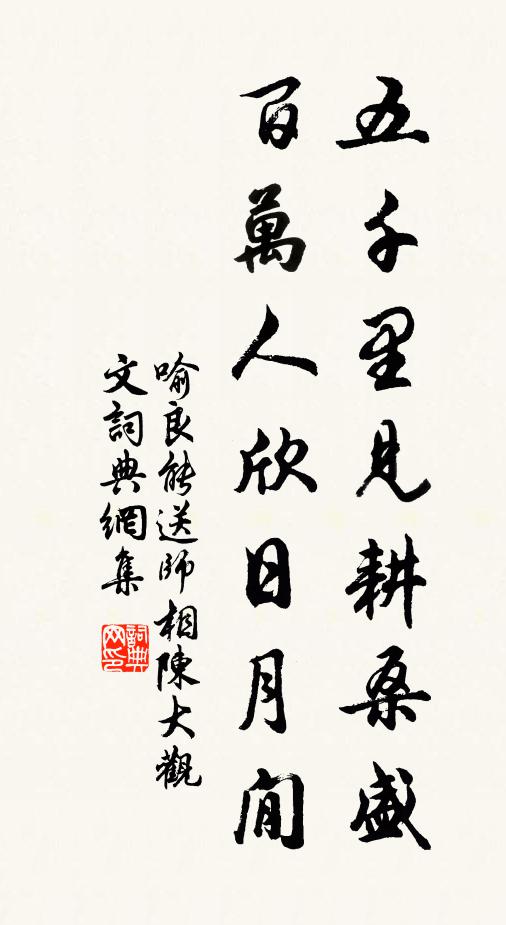 五千里見耕桑盛
百萬人欣日月閒
喻良能送師相陳大觀
文詞典網集
詞典
网印